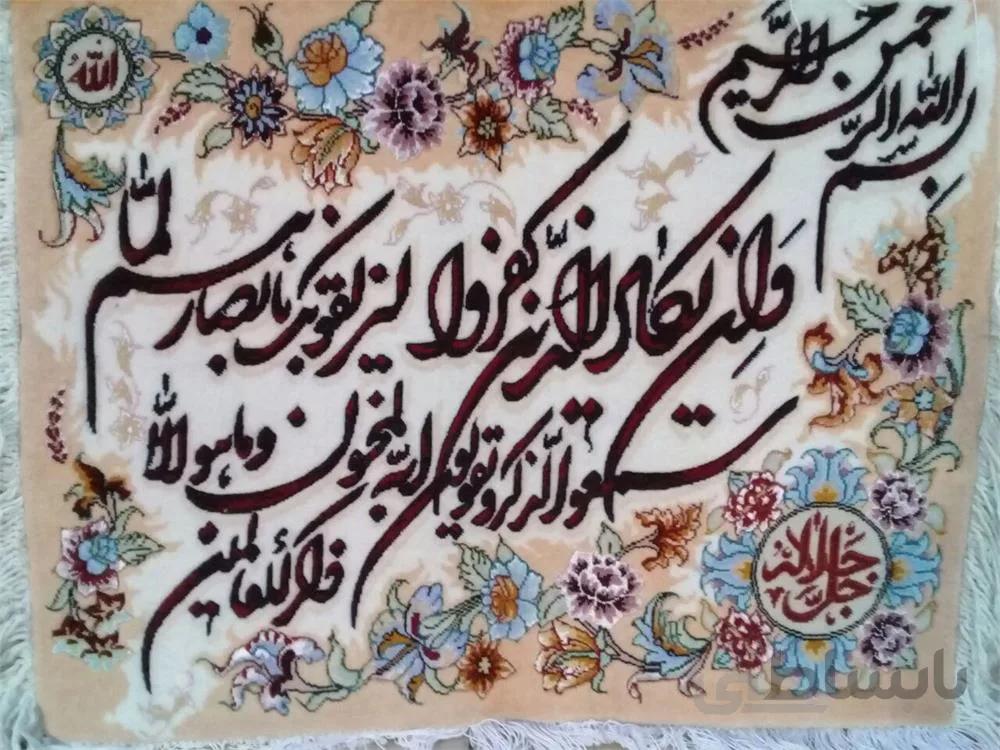 الله
بسم الله الرحمن الرحیم
وان یکاد الذین کفروا لیزلقونک بابصارهم لما
سمعوا الذکر و یقولون انه لمجنون وما هو الا
ذکر للعالمین
جل جلاله
باسلاطی